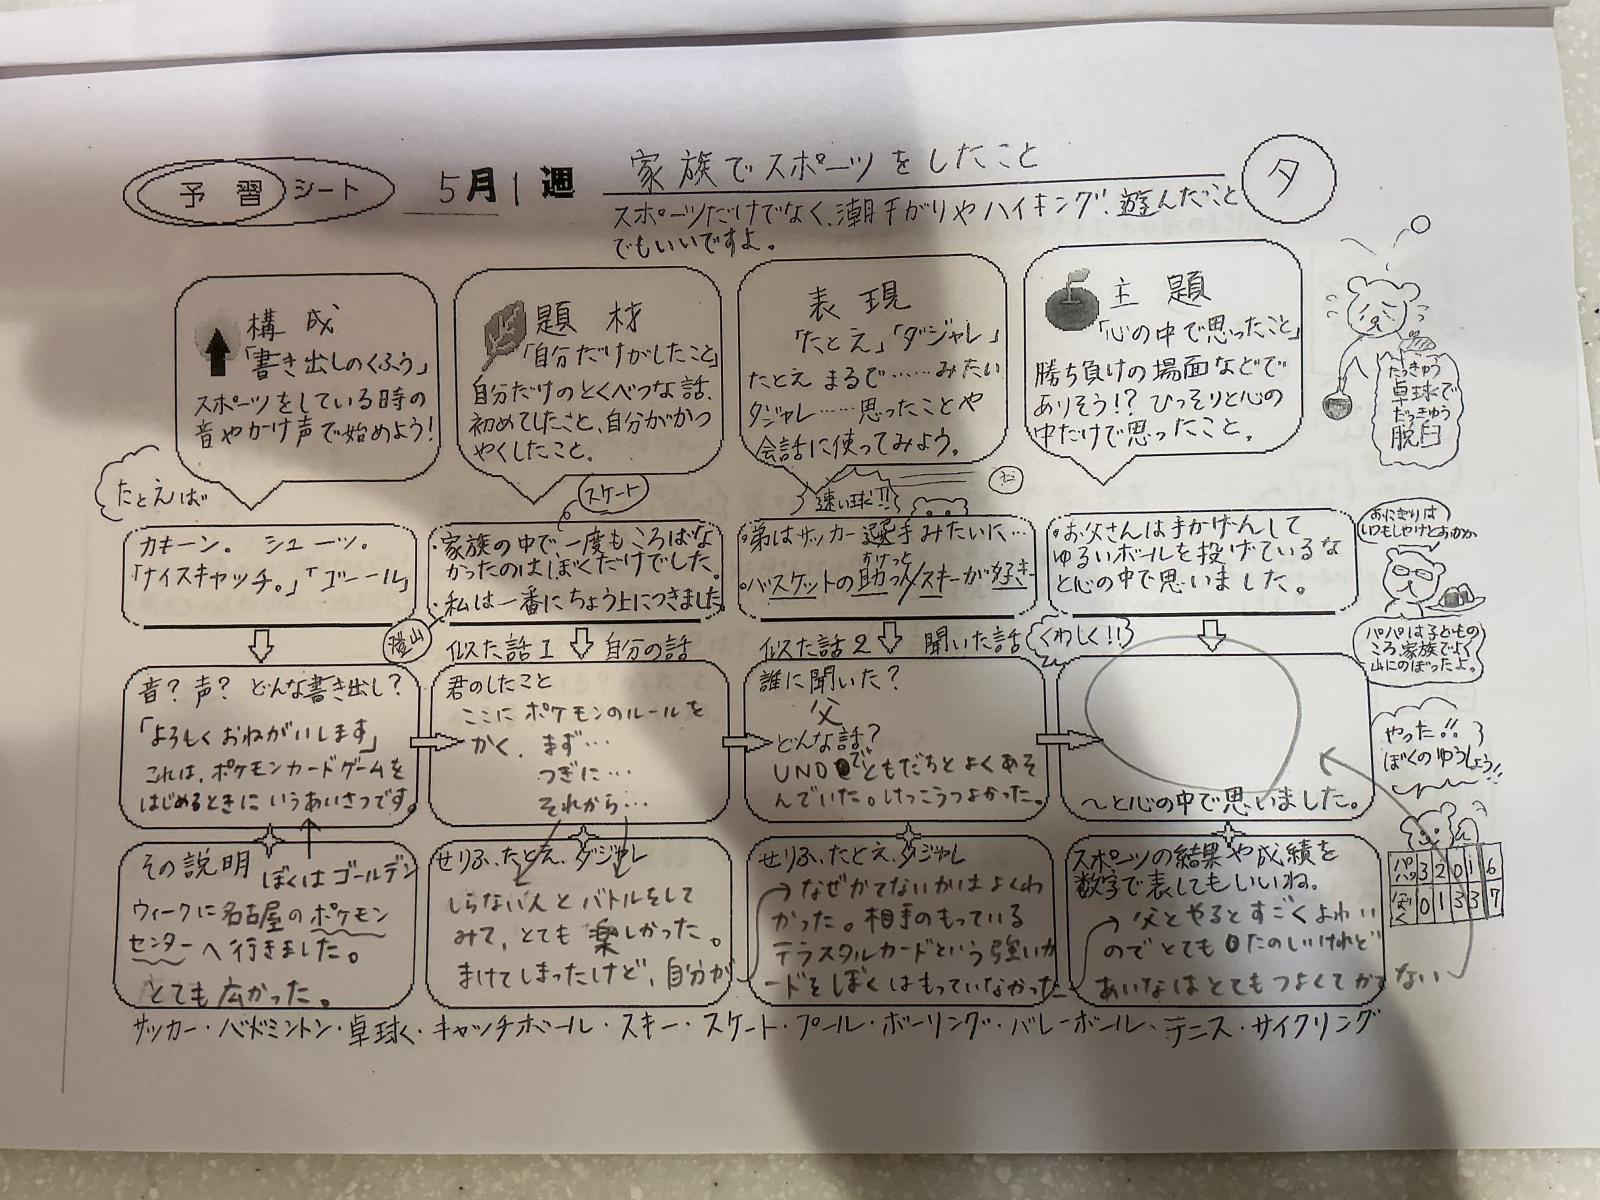 予習シート 5月1週 家族でスポーツをしたこと タ
スポーツだけでなく、潮干がりやハイキング、遊んだこと
でもいいですよ。
構成
「書き出しのくふう」
スポーツをしている時の
音やかけ声で始めよう!
題材
「自分だけがしたこと」
自分だけのとくべつな話、
初めてしたこと、自分がかつ
やくしたこと。
表現
「たとえ」「ダジャレ」
たとえ まるで……みたい
ダジャレ……思ったことや
会話に使ってみよう。
主題
「心の中で思ったこと」
勝ち負けの場面などで
ありそう!? ひっそりと心の
中だけで思ったこと。
たっきゅう
卓球で
だっきゅう
脱臼
たとえば
カキーン。 シューッ。
「ナイスキャッチ。」「ゴール」
スケート
・家族の中で、一度もころばな
かったのはぼくだけでした。
・私は一番にちょう上につきました。
登山
速い球だ!!
・弟はサッカー選手みたいに…
・バスケットの助っ人/スキーが好き
すけっと
・お父さんは手かげんして
ゆるいボールを投げているな
と心の中で思いました。
おにぎりは
いつもしゃけとおかか
パパは子どもの
ころ、家族でよく
山にのぼったよ。
音? 声? どんな書き出し?
「よろしくおねがいします」
これは、ポケモンカードゲームを
はじめるときにいうあいさつです。
似た話1 自分の話
君のしたこと
ここにポケモンのルールを
かく、まず…
つぎに…
それから…
似た話2 聞いた話
誰に聞いた?
父
どんな話?
UNOでともだちとよくあそ
んでいた。けっこうつよかった。
くわしく!!
〜と心の中で思いました。
やった!!
ぼくのゆうしょう!!
その説明 ぼくはゴールデン
ウィークに名古屋のポケモン
センターへ行きました。
とても広かった。
せりふ、たとえ、ダジャレ
しらない人とバトルをして
みて、とても楽しかった。
まけてしまったけど、自分が
せりふ、たとえ、ダジャレ
なぜかてないかはよくわ
かった。相手のもっている
テラスタルカードという強いカ
ードをぼくはもっていなかった
スポーツの結果や成績を
数字で表してもいいね。
父とやるとすごくよわい
のでとてもたのしいけれど
あいなはとてもつよくてかてない
パパ 3 2 0 1 6
ぼく 0 1 3 3 7
サッカー・バドミントン・卓球・キャッチボール・スキー・スケート・プール・ボーリング・バレーボール、テニス・サイクリング